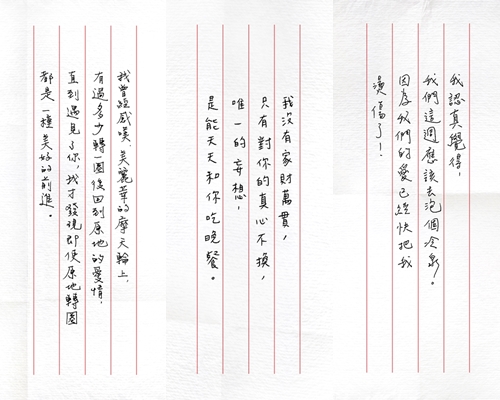 我認真覺得，
我們這週應該去泡個冷泉。
因為我們的愛已經快把我
燙傷了！
我沒有家財萬貫，
只有對你的真心不換，
唯一的妄想，
是能天天和你吃晚餐。
我曾經感嘆，美麗華的摩天輪上，
有過多少轉一圈後回到原地的愛情，
直到遇見了你，我才發現即便原地轉圈
都是一種美好的前進。